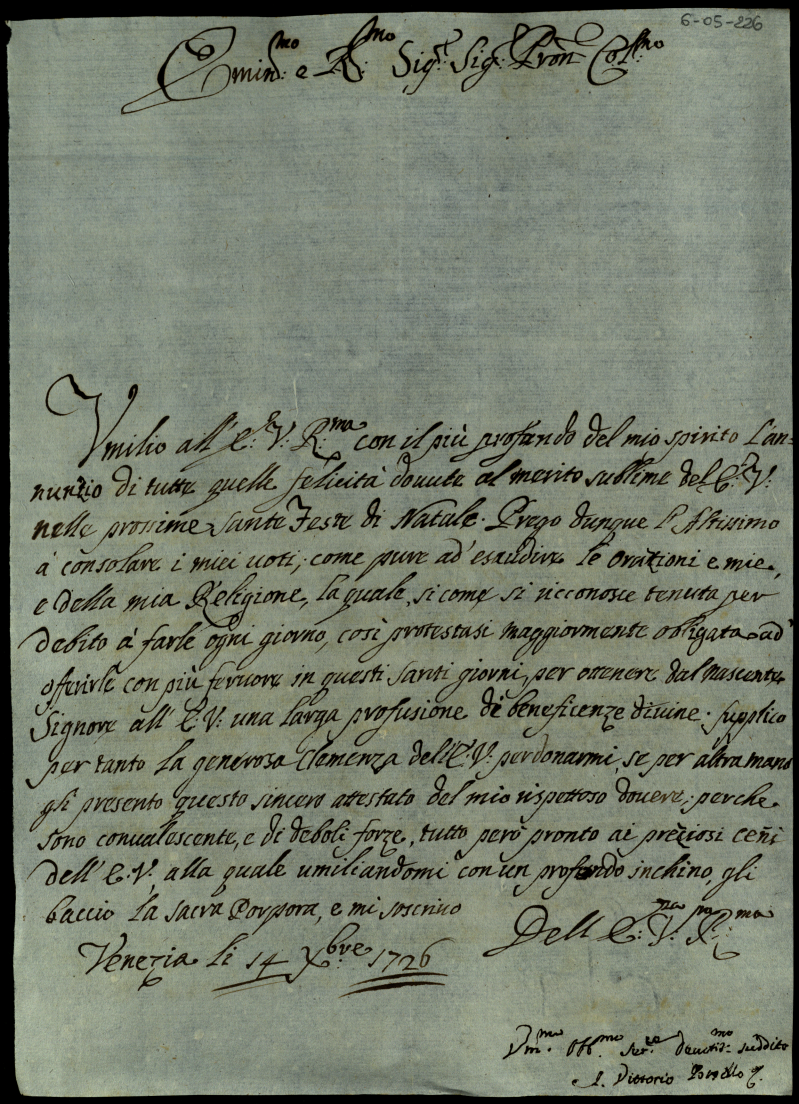 6-05-226
Emin:mo e R:mo Sig:r Sig:r Pron Col:mo
Vmilio all' E: V: R:ma con il più profondo del mio spirito l'an-
nunzio di tutte quelle felicità dovute al merito sublime del E: V:
nelle prossime Sante Feste di Natale. Prego dunque l'Altissimo
à consolare i miei voti, come pure ad' esaudire le orationi e mie,
e della mia Religione, la quale, si come si ricconosce tenuta per
debito à farle ogni giorno, così protestasi maggiormente obligata ad'
offerirle con più fervore in questi santi giorni, per ottenere dal nascente
Signore all' E: V: una larga profusione di beneficenze divine. supplico
per tanto la generosa Clemenza dell' E: V: perdonarmi, se per altra mano
gli presento questo sincero attestato del mio rispettoso dovere; perche
sono convalescente, e di deboli forze, tutto però pronto ai preziosi ceñi
dell' E: V: alla quale umiliandomi con un profondo inchino, gli
baccio la sacra Porpora, e mi soscrivo
Venezia li 14 Xbre 1726 Dell E: V: R:ma
Vm:mo Obb:mo Ser:re devotis:mo suddito
Vittorio